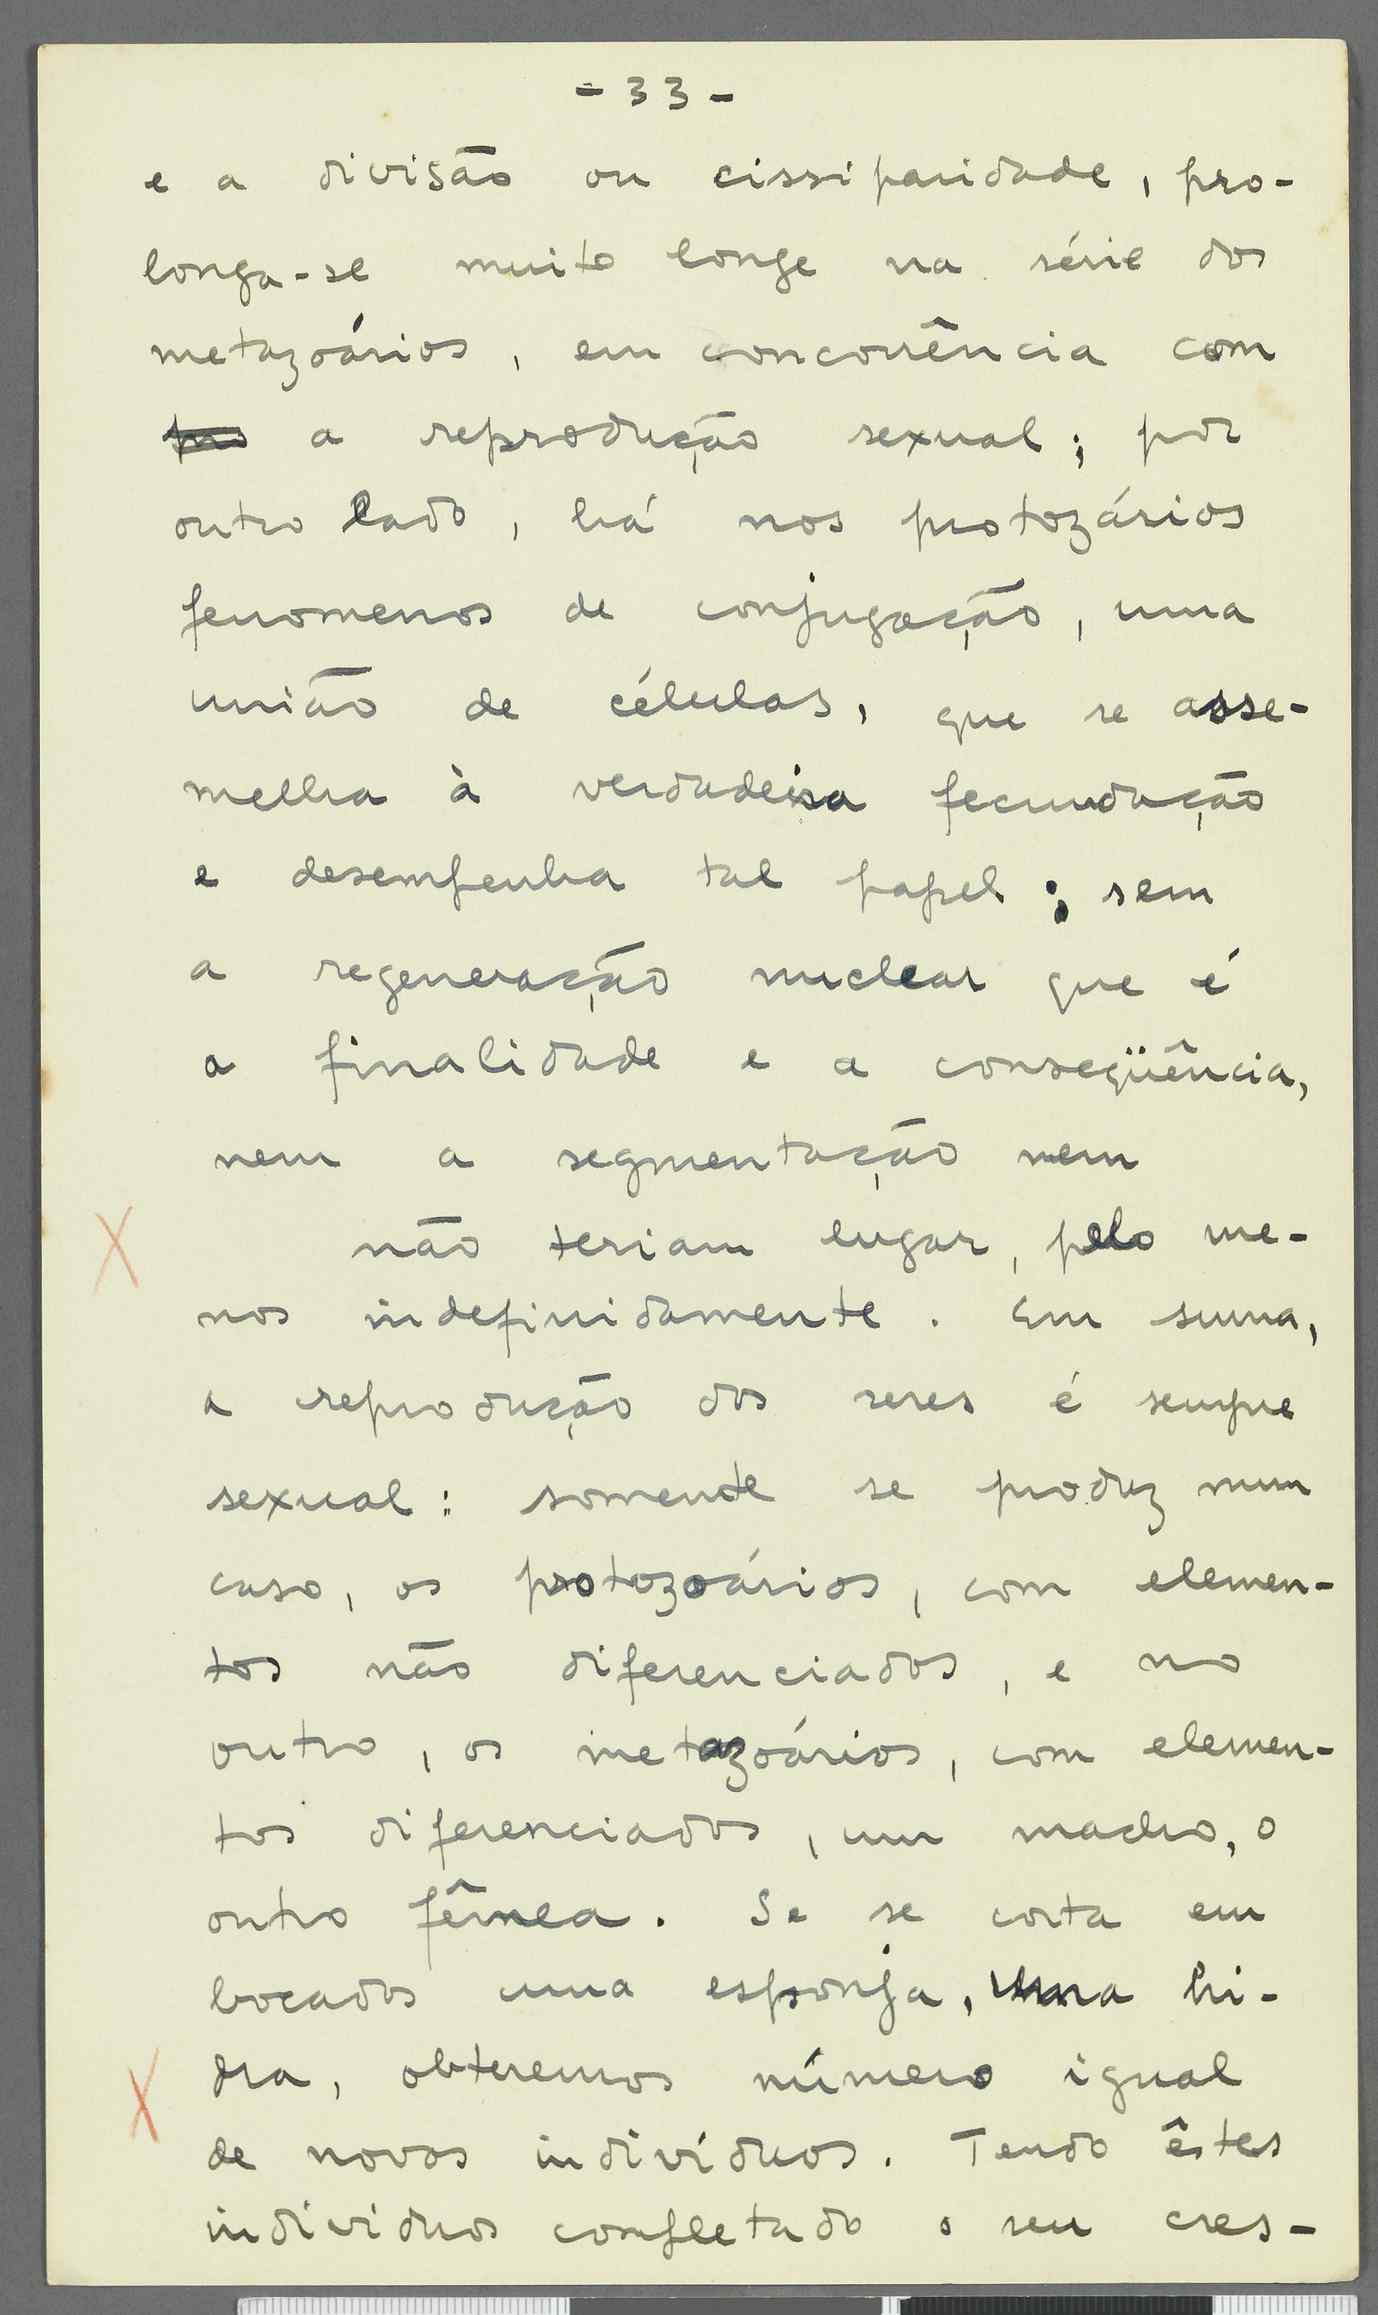 - 33 -
e a divisão ou cissiparidade, pro-
longa-se muito longe na série dos
metazoários, em concorrência com
a reprodução sexual; por
outro lado, há nos protozários
fenomenos de conjugação, uma
união de células, que se asse-
melha à verdadeira fecundação
e desempenha tal papel; sem
a regeneração nuclear que é
a finalidade e a conseqüência,
nem a segmentação nem
X não teriam lugar, pelo me-
nos indefinidamente. Em suma,
a reprodução dos seres é sempre
sexual: somente se produz num
caso, os protozoários, com elemen-
tos não diferenciados, e no
outro, os metazoários, com elemen-
tos diferenciados, um macho, o
outro fêmea. Se se corta em
bocados uma esponja, uma hi-
X dra, obteremos número igual
de novos indivíduos. Tendo êstes
individuos completado o seu cres-